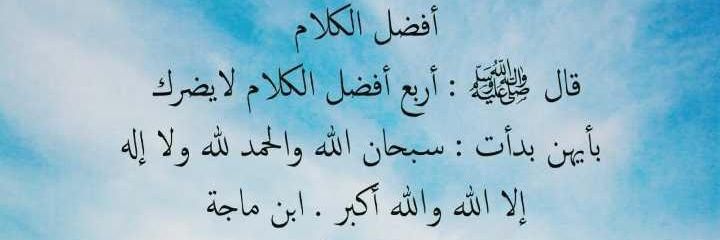 أفضل الكلام
قال ﷺ : أربع أفضل الكلام لايضرك
بأيهن بدأت : سبحان الله والحمد لله ولا إله
إلا الله والله أكبر . ابن ماجة